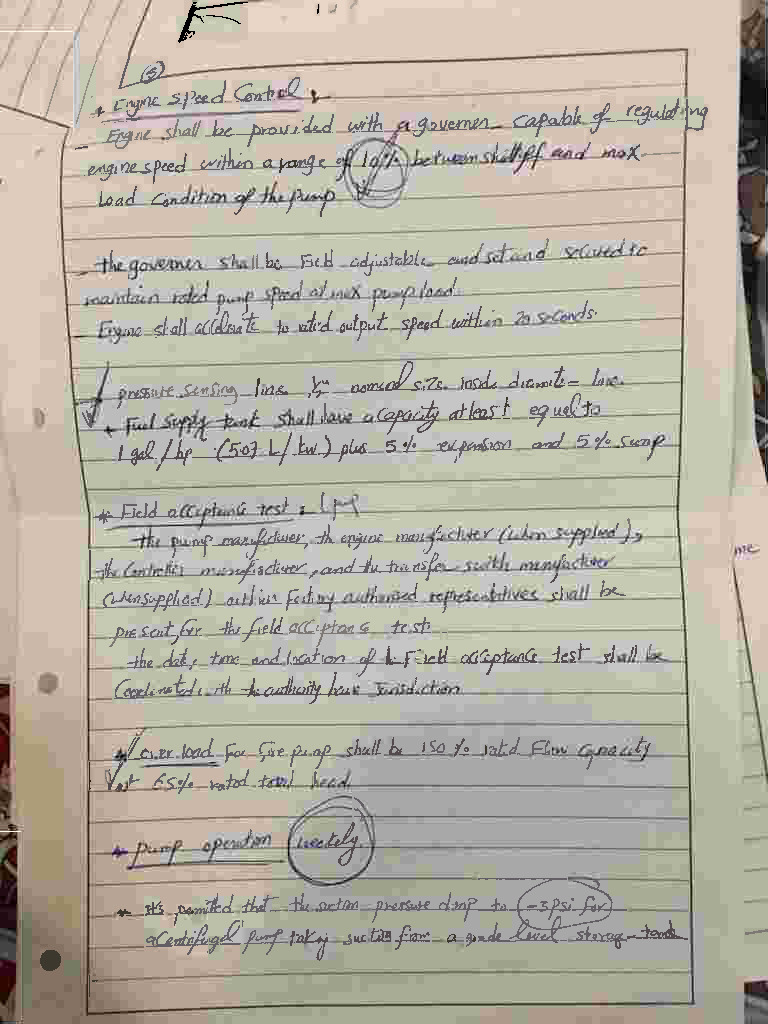 (5)
* Engine speed Control :
- Engine shall be provided with a governer capable of regulating
engine speed within a range of 10% between shutoff and max
Load Condition of the pump
- the governer shall be Field adjustable and set and secured to
maintain rated pump speed at max pump load.
- Engine shall acclerate to rated output speed within 20 seconds.
pressure sensing line ½" nominal size inside
* Fuel supply tank shall have a capacity at least equal to
1 gal/hp (507 L/kw) plus 5% expansion and 5% sump
* Field acceptance test :
the pump manufacturer, the engine manufacturer (when supplied),
the Controller manufacturer, and the transfer switch manufacturer
(when supplied) factory authorized representatives shall be
present for the field acceptance test.
the date, time and location of the Field acceptance test shall be
Coordinated with the authority have Jurisdiction
* over load For fire pump shall be 150% rated Flow Capacity
at 65% rated total head.
* pump operation weekely
* it's permitted that the suction pressure drop to -3 psi for
a Centrifugel pump taking suction from a grade level storage tank